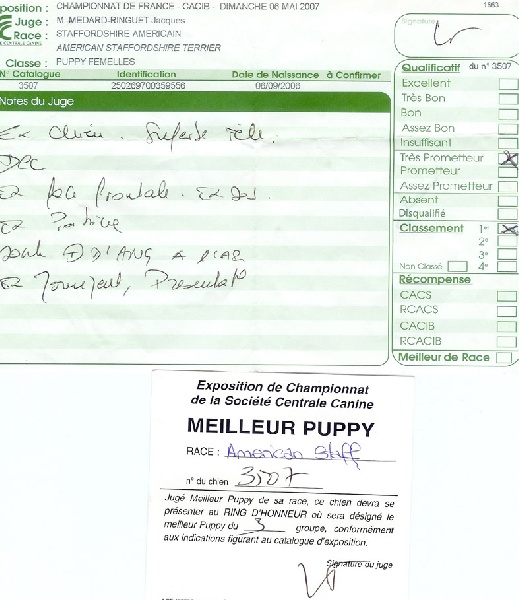 position : CHAMPIONNAT DE FRANCE - CACIB - DIMANCHE 06 MAI 2007
1863
Juge : M. MEDARD-RINGUET Jacques
Race : STAFFORDSHIRE AMERICAIN
AMERICAN STAFFORDSHIRE TERRIER
Classe : PUPPY FEMELLES
N° Catalogue Identification Date de Naissance à Confirmer
3507 250269700359556 06/09/2006
Notes du Juge
Signature
Qualificatif du n° 3507
Excellent
Très Bon
Bon
Assez Bon
Insuffisant
Très Prometteur X
Prometteur
Assez Prometteur
Absent
Disqualifié
Classement 1er X
2e
3e
Non Classé 4e
Récompense
CACS
RCACS
CACIB
RCACIB
Meilleur de Race
Ex Superbe tête.
Dec
Ex frontale. Ex
Ex Poitrine
+ D'ANG A
Ex Present
Exposition de Championnat
de la Société Centrale Canine
MEILLEUR PUPPY
RACE : American Staff
n° du chien 3507
Jugé Meilleur Puppy de sa race, ce chien devra se
présenter au RING D'HONNEUR où sera désigné le
meilleur Puppy du 3 groupe, conformément
aux indications figurant au catalogue d'exposition.
Signature du juge